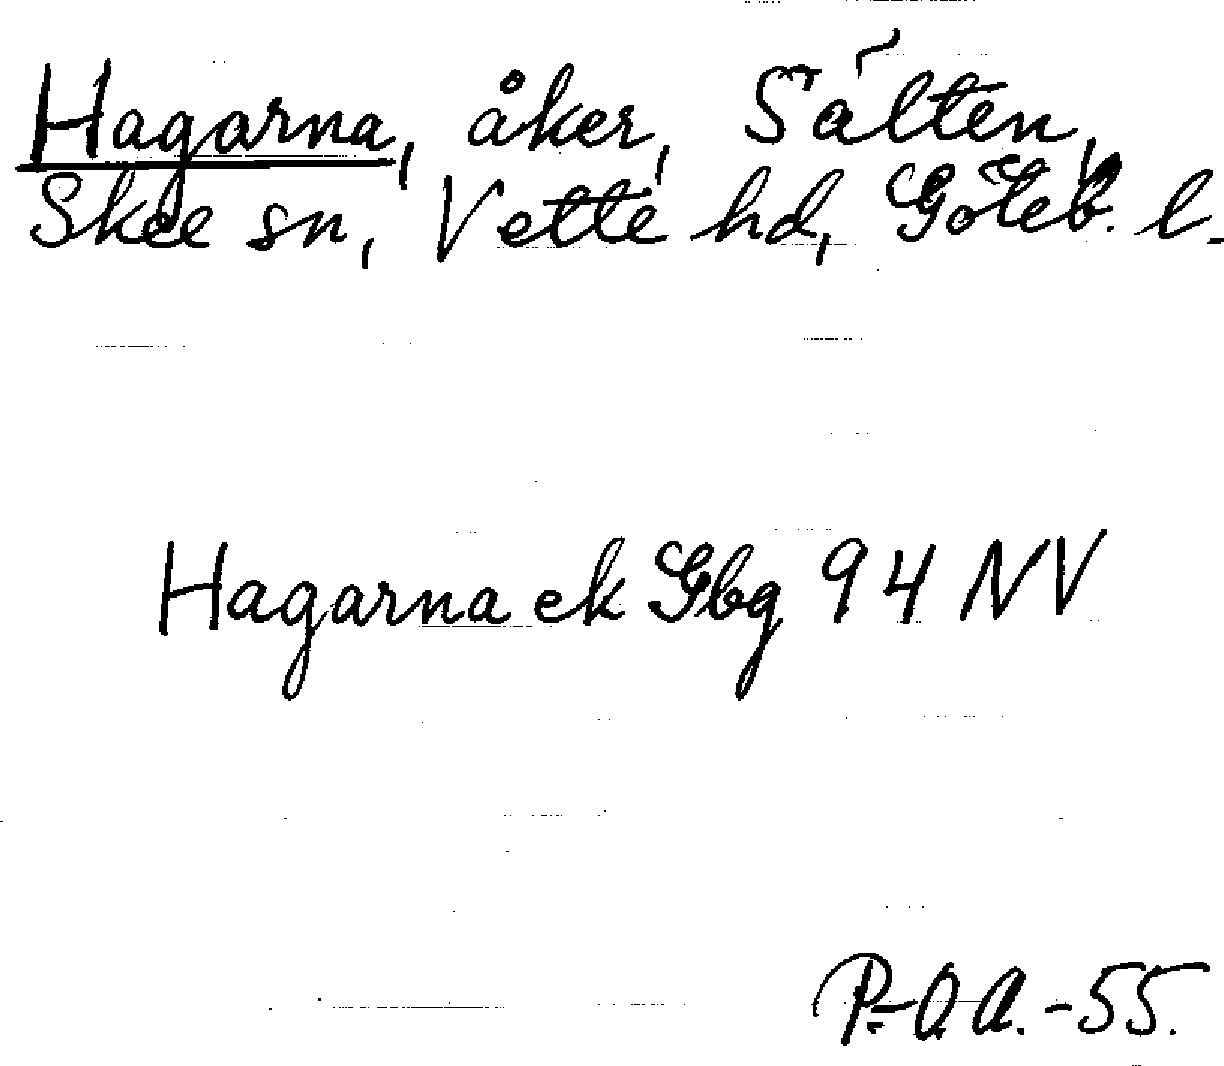 Hagarna, åker, Sälten,
Skee sn, Vette hd, Göteb. l.
Hagarna ek Gbg 94 NV
P.-O.A.-55.